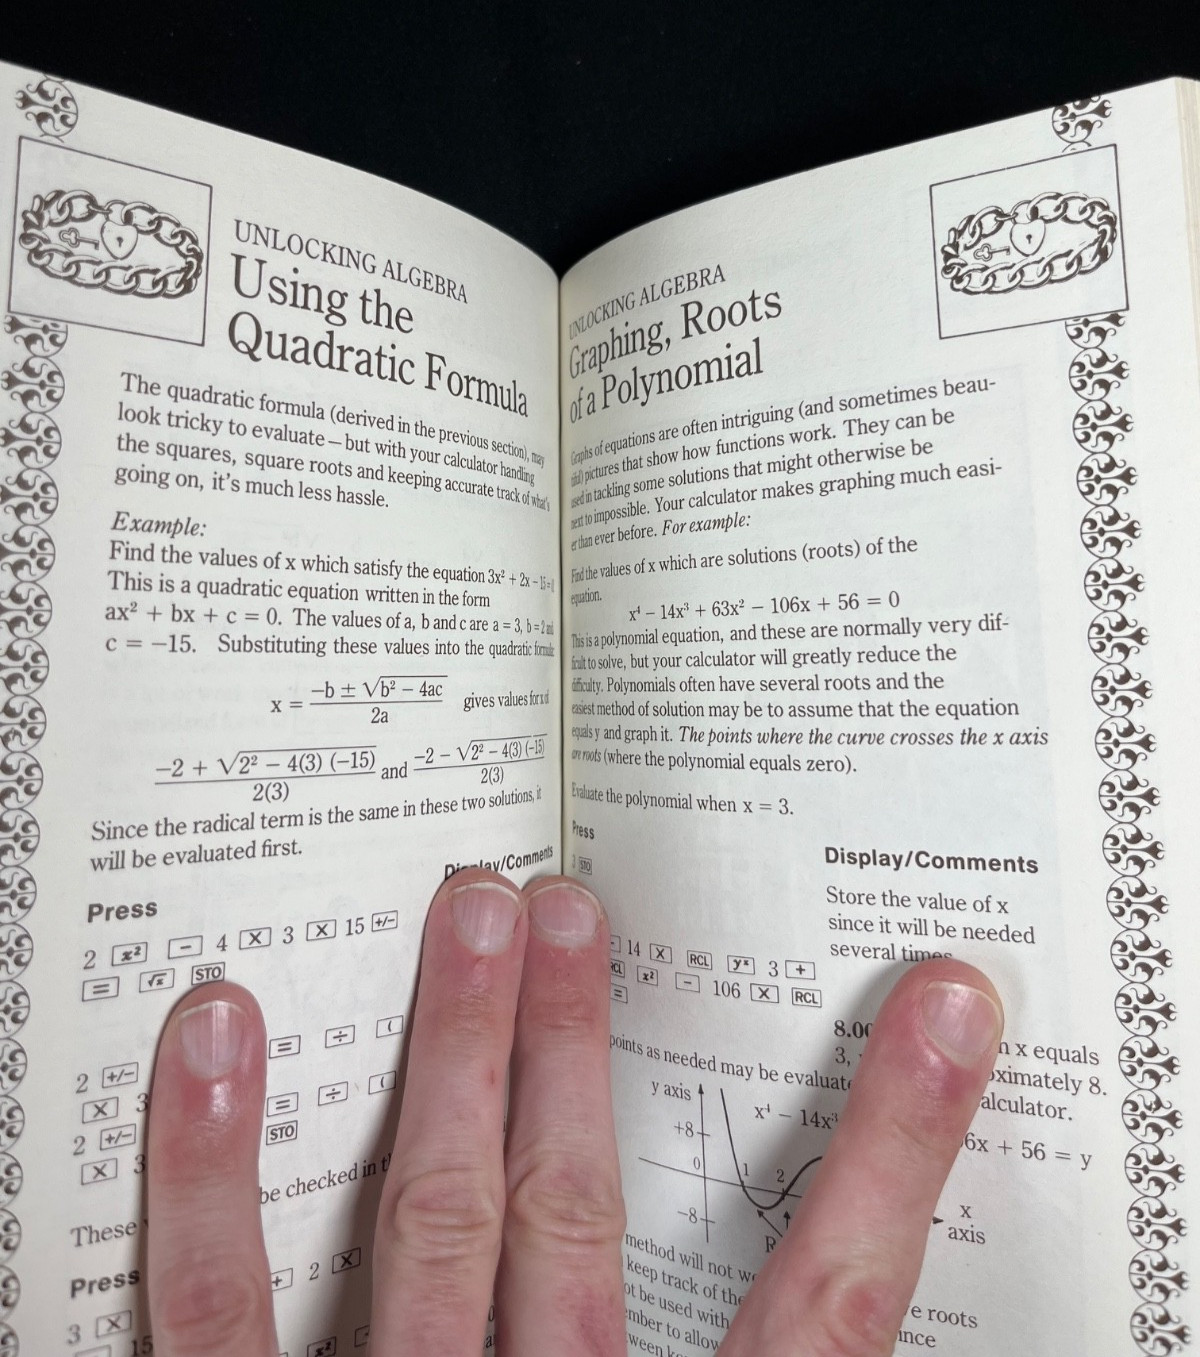 UNLOCKING ALGEBRA
Using the
Quadratic Formula
The quadratic formula (derived in the previous section), may
look tricky to evaluate—but with your calculator handling
the squares, square roots and keeping accurate track of what's
going on, it's much less hassle.
Example:
Find the values of x which satisfy the equation 3x² + 2x − 15 = 0
This is a quadratic equation written in the form
ax² + bx + c = 0. The values of a, b and c are a = 3, b = 2 and
c = −15. Substituting these values into the quadratic formula:
x = (−b ± √(b² − 4ac)) / 2a gives values for x of
(−2 + √(2² − 4(3) (−15))) / 2(3) and (−2 − √(2² − 4(3) (−15))) / 2(3)
Since the radical term is the same in these two solutions, it
will be evaluated first.
Press Display/Comments
2 x² − 4 X 3 X 15 +/−
= √x STO
2 +/− = ÷ (
X 3
2 +/− = ÷ (
X 3 STO
be checked in
These
Press
3 X + 2 X
15 x²
UNLOCKING ALGEBRA
Graphing, Roots
of a Polynomial
Graphs of equations are often intriguing (and sometimes beau-
tiful) pictures that show how functions work. They can be
used in tackling some solutions that might otherwise be
next to impossible. Your calculator makes graphing much easi-
er than ever before. For example:
Find the values of x which are solutions (roots) of the
equation.
x⁴ − 14x³ + 63x² − 106x + 56 = 0
This is a polynomial equation, and these are normally very dif-
ficult to solve, but your calculator will greatly reduce the
difficulty. Polynomials often have several roots and the
easiest method of solution may be to assume that the equation
equals y and graph it. The points where the curve crosses the x axis
are roots (where the polynomial equals zero).
Evaluate the polynomial when x = 3.
Press Display/Comments
3 STO Store the value of x
since it will be needed
several times
− 14 X RCL yˣ 3 +
RCL x² − 106 X RCL
=
8.00 x equals
3, approximately 8.
points as needed may be evaluated calculator.
y axis x⁴ − 14x³ 6x + 56 = y
+8
0 1 2
−8 x
axis
R
method will not
keep track of the
not be used with roots
remember to allow